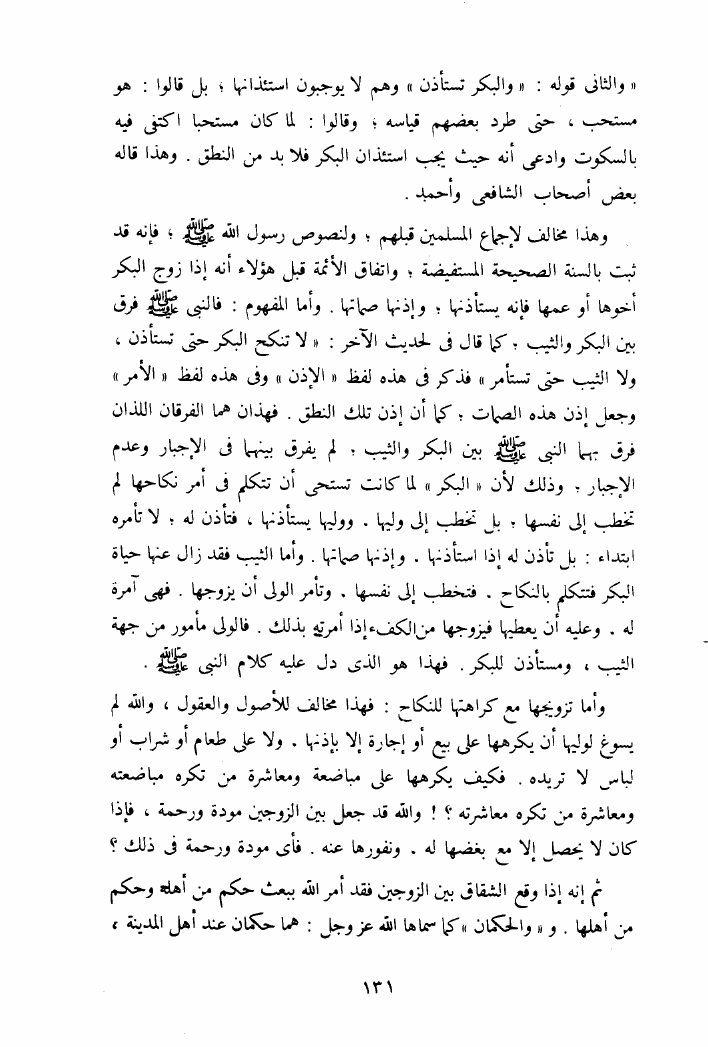 « والثانى قوله : « والبكر تستأذن » وهم لا يوجبون استئذانها ؛ بل قالوا : هو
مستحب ، حتى طرد بعضهم قياسه ؛ وقالوا : لما كان مستحبا اكتفى فيه
بالسكوت وادعى أنه حيث يجب استئذان البكر فلا بد من النطق . وهذا قاله
بعض أصحاب الشافعى وأحمد .
وهذا مخالف لإجماع المسلمين قبلهم ؛ ولنصوص رسول الله ﷺ ؛ فإنه قد
ثبت بالسنة الصحيحة المستفيضة ؛ واتفاق الأئمة قبل هؤلاء أنه إذا زوج البكر
أخوها أو عمها فإنه يستأذنها ؛ وإذنها صماتها . وأما المفهوم : فالنبى ﷺ فرق
بين البكر والثيب ؛ كما قال فى لحديث الآخر : « لا تنكح البكر حتى تستأذن ،
ولا الثيب حتى تستأمر » فذكر فى هذه لفظ « الإذن » وفى هذه لفظ « الأمر »
وجعل إذن هذه الصمات ؛ كما أن إذن تلك النطق . فهذان هما الفرقان اللذان
فرق بهما النبى ﷺ بين البكر والثيب ؛ لم يفرق بينهما فى الإجبار وعدم
الإجبار ؛ وذلك لأن « البكر » لما كانت تستحى أن تتكلم فى أمر نكاحها لم
تخطب إلى نفسها ؛ بل تخطب إلى وليها . ووليها يستأذنها ، فتأذن له ؛ لا تأمره
ابتداء : بل تأذن له إذا استأذنها . وإذنها صماتها . وأما الثيب فقد زال عنها حياة
البكر فتتكلم بالنكاح . فتخطب إلى نفسها . وتأمر الولى أن يزوجها . فهى آمرة
له . وعليه أن يعطيها فيزوجها من الكفء إذا أمرته بذلك . فالولى مأمور من جهة
الثيب ، ومستأذن للبكر . فهذا هو الذى دل عليه كلام النبى ﷺ .
وأما تزويجها مع كراهتها للنكاح : فهذا مخالف للأصول والعقول ، والله لم
يسوغ لوليها أن يكرهها على بيع أو إجارة إلا بإذنها . ولا على طعام أو شراب أو
لباس لا تريده . فكيف يكرهها على مباضعة ومعاشرة من تكره مباضعته
ومعاشرة من تكره معاشرته ؟ ! والله قد جعل بين الزوجين مودة ورحمة ، فإذا
كان لا يحصل إلا مع بغضها له . ونفورها عنه . فأى مودة ورحمة فى ذلك ؟
ثم إنه إذا وقع الشقاق بين الزوجين فقد أمر الله ببعث حكم من أهله وحكم
من أهلها . و « والحكمان » كما سماها الله عز وجل : هما حكمان عند أهل المدينة ،
١٣١